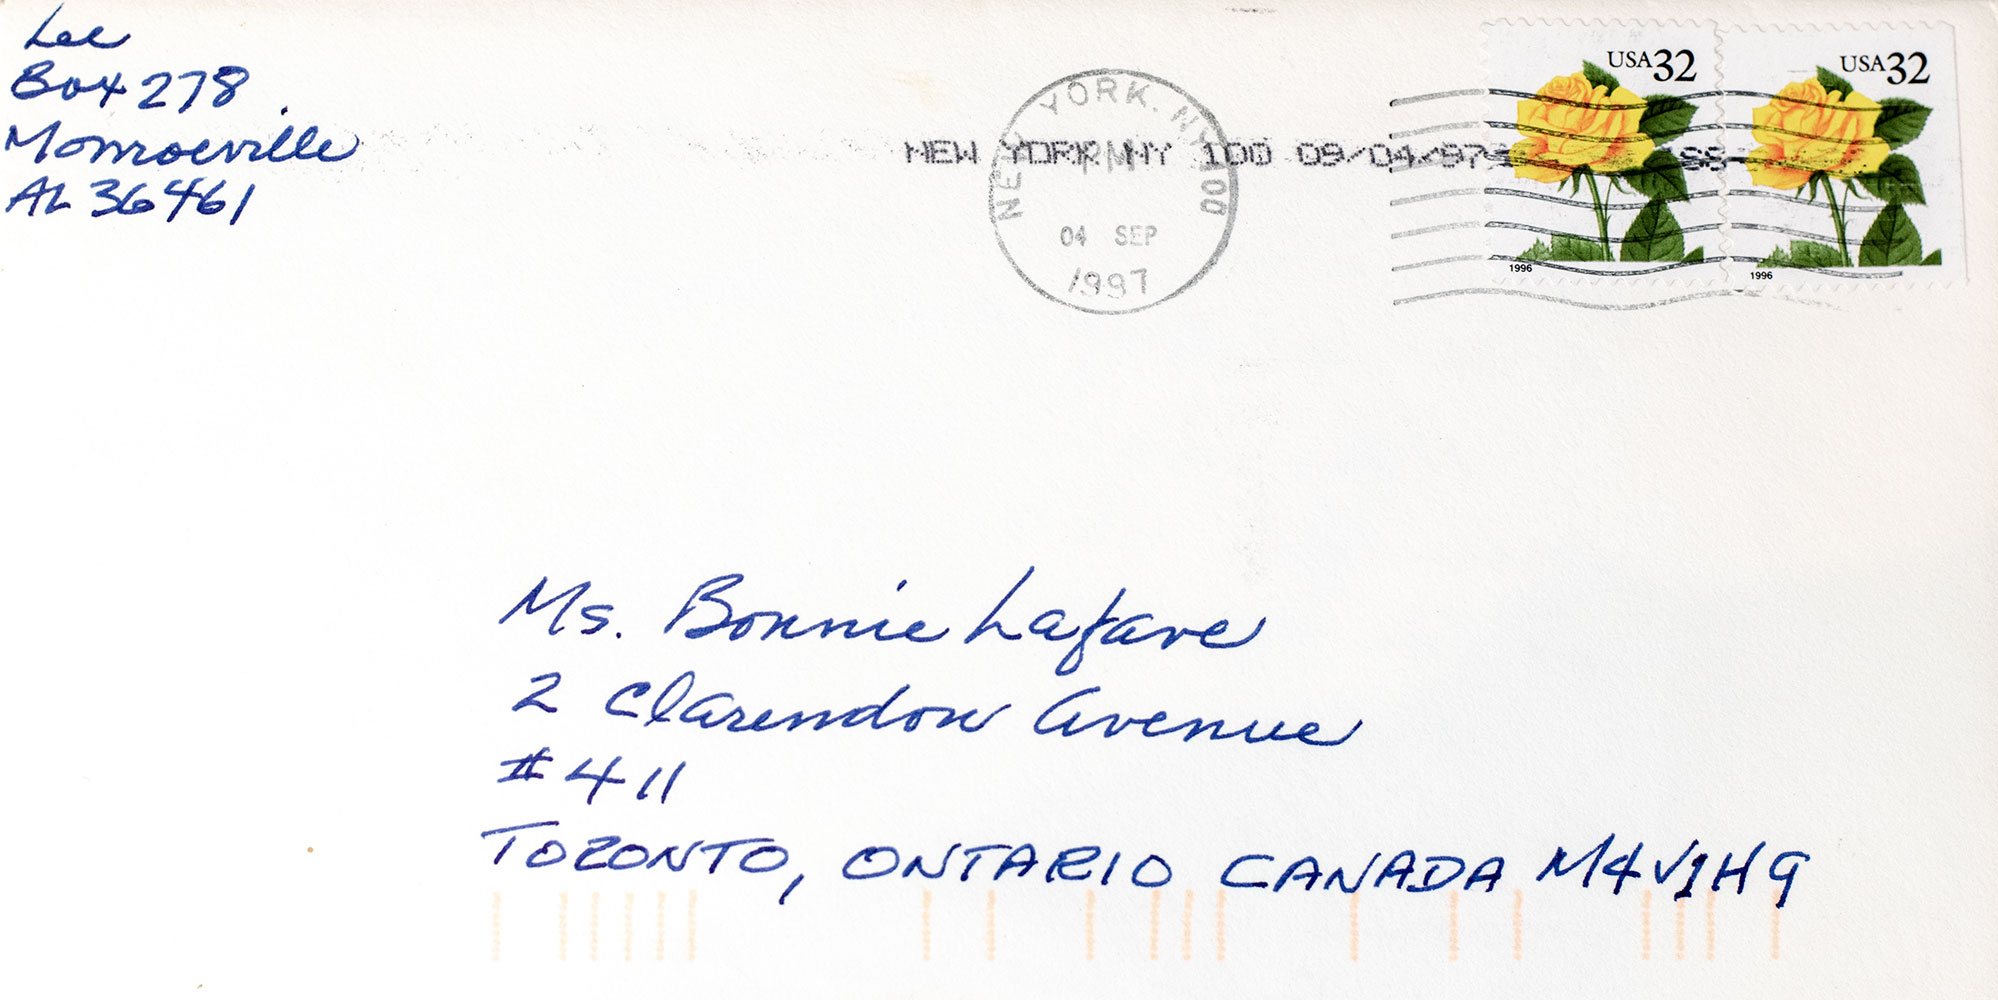 Lee
Box 278
Monroeville
AL 36461
NEW YORK, NY 100
PM
04 SEP
1997
NEW YORK NY 100 09/04/97
USA 32
1996
USA 32
1996
Ms. Bonnie Lafave
2 Clarendon Avenue
#411
TORONTO, ONTARIO CANADA M4V1H9